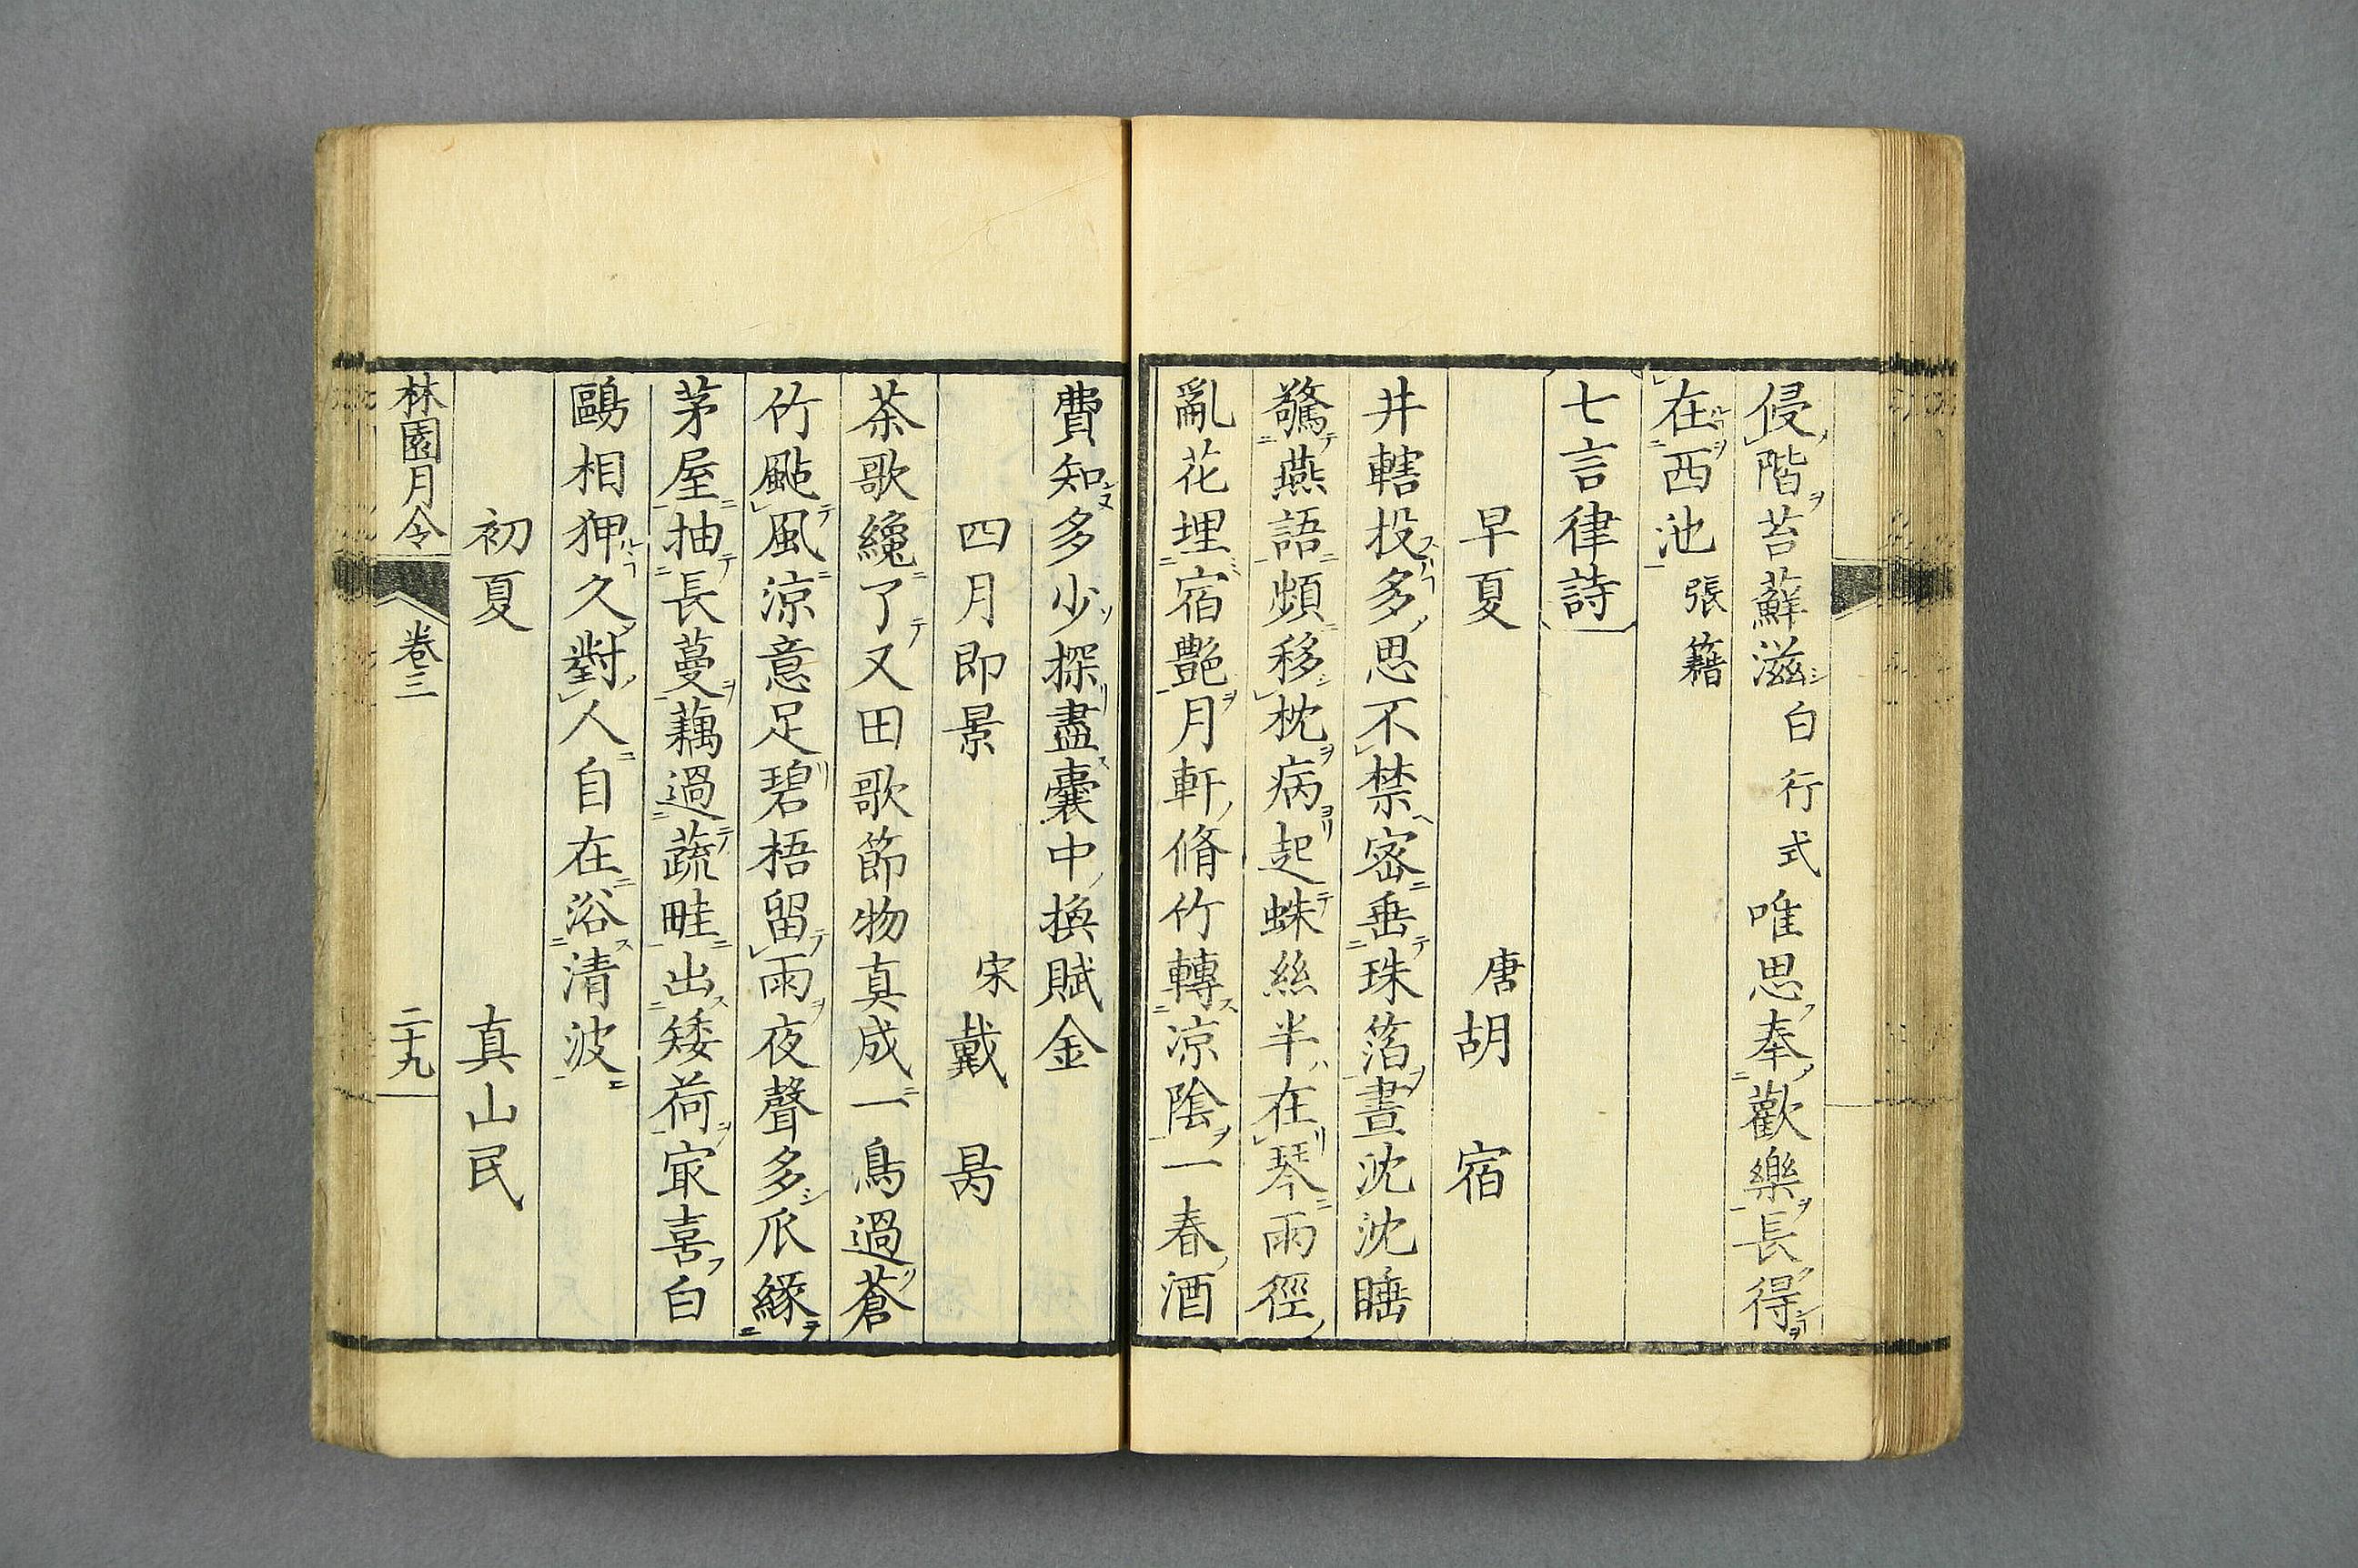 侵階苔蘚滋白行式唯思奉歡樂長得
在西池張籍
七言律詩
早夏 唐胡宿
井轄投多思不禁密垂珠箔晝沈沈睡
驚燕語頻移枕病起蛛絲半在琴雨徑
亂花埋宿艷月軒脩竹轉凉陰一春酒
費知多少探盡囊中換賦金
四月即景 宋戴昺
茶歌纔了又田歌節物真成一鳥過蒼
竹颭風涼意足碧梧留雨夜聲多爪緣
茅屋抽長蔓藕過蔬畦出矮荷㝡喜白
鷗相狎久對人自在浴清波
初夏 真山民
林園月令 卷三 二十九